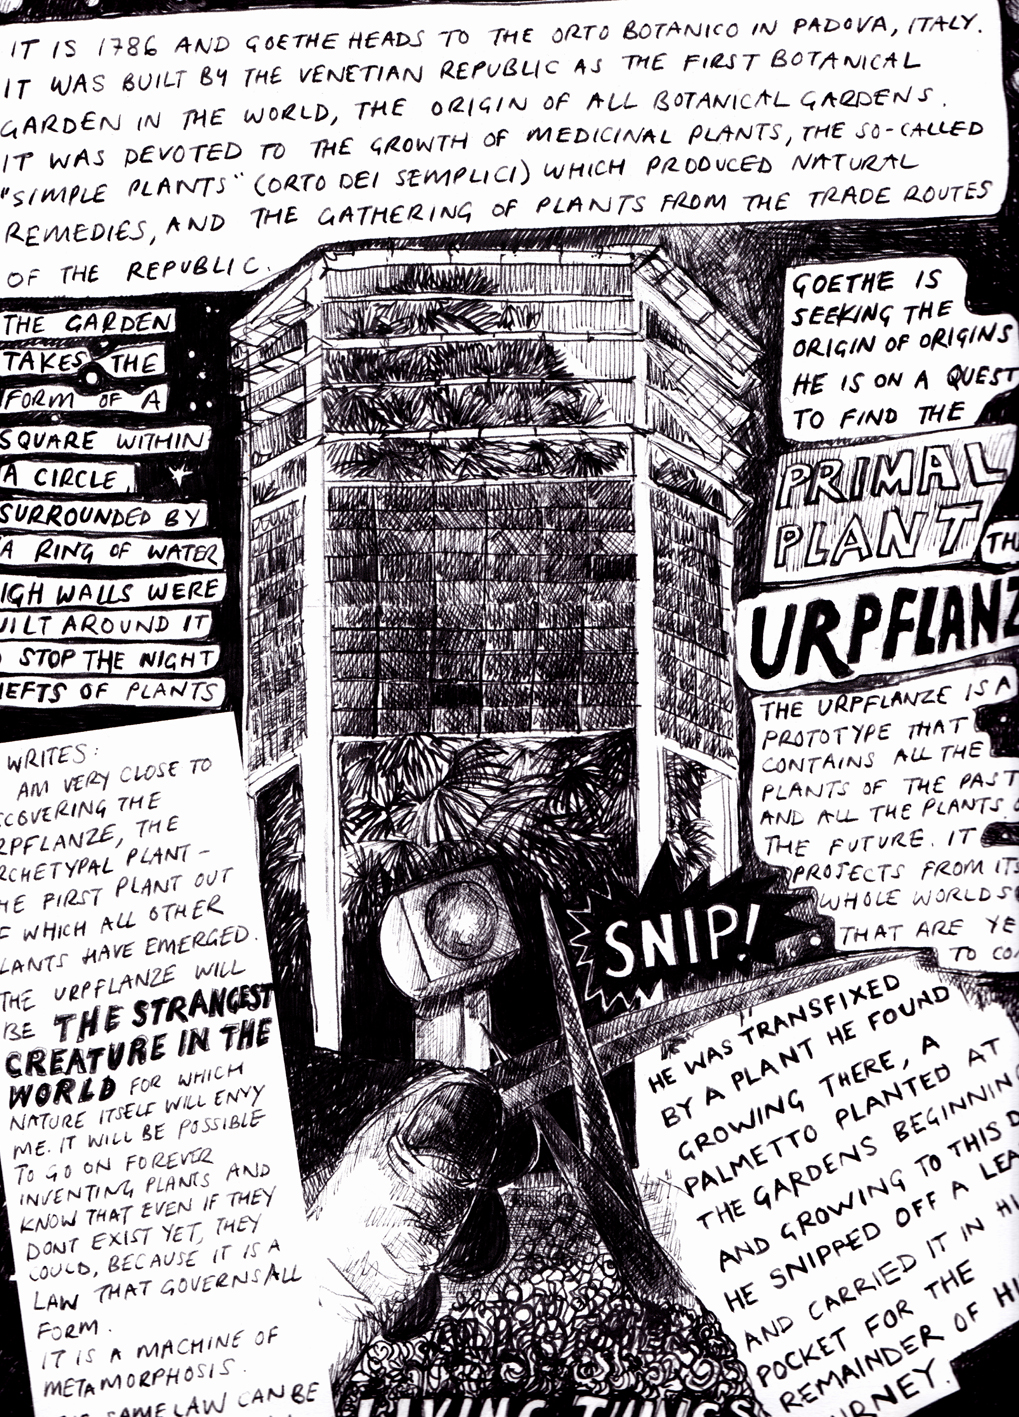 IT IS 1786 AND GOETHE HEADS TO THE ORTO BOTANICO IN PADOVA, ITALY.
IT WAS BUILT BY THE VENETIAN REPUBLIC AS THE FIRST BOTANICAL
GARDEN IN THE WORLD, THE ORIGIN OF ALL BOTANICAL GARDENS.
IT WAS DEVOTED TO THE GROWTH OF MEDICINAL PLANTS, THE SO-CALLED
"SIMPLE PLANTS" (ORTO DEI SEMPLICI) WHICH PRODUCED NATURAL
REMEDIES, AND THE GATHERING OF PLANTS FROM THE TRADE ROUTES
OF THE REPUBLIC.
THE GARDEN
TAKES THE
FORM OF A
SQUARE WITHIN
A CIRCLE,
SURROUNDED BY
A RING OF WATER
IGH WALLS WERE
UILT AROUND IT
STOP THE NIGHT
EFTS OF PLANTS
GOETHE IS
SEEKING THE
ORIGIN OF ORIGINS
HE IS ON A QUEST
TO FIND THE
PRIMAL
PLANT TH
URPFLANZ
THE URPFLANZE IS A
PROTOTYPE THAT
CONTAINS ALL THE
PLANTS OF THE PAST
AND ALL THE PLANTS
THE FUTURE. IT
PROJECTS FROM ITS
WHOLE WORLDS
THAT ARE YE
TO CO
WRITES:
AM VERY CLOSE TO
SCOVERING THE
RPFLANZE, THE
RCHETYPAL PLANT -
HE FIRST PLANT OUT
F WHICH ALL OTHER
LANTS HAVE EMERGED.
THE URPFLANZE WILL
BE THE STRANGEST
CREATURE IN THE
WORLD FOR WHICH
NATURE ITSELF WILL ENVY
ME. IT WILL BE POSSIBLE
TO GO ON FOREVER
INVENTING PLANTS AND
KNOW THAT EVEN IF THEY
DONT EXIST YET, THEY
COULD, BECAUSE IT IS A
LAW THAT GOVERNS ALL
FORM.
IT IS A MACHINE OF
METAMORPHOSIS.
SAME LAW CAN BE
SNIP!
HE WAS TRANSFIXED
BY A PLANT HE FOUND
GROWING THERE, A
PALMETTO PLANTED AT
THE GARDENS BEGINNING
AND GROWING TO THIS D
HE SNIPPED OFF A LEA
AND CARRIED IT IN HI
POCKET FOR THE
REMAINDER OF HI
URNEY.
LIVING THINGS